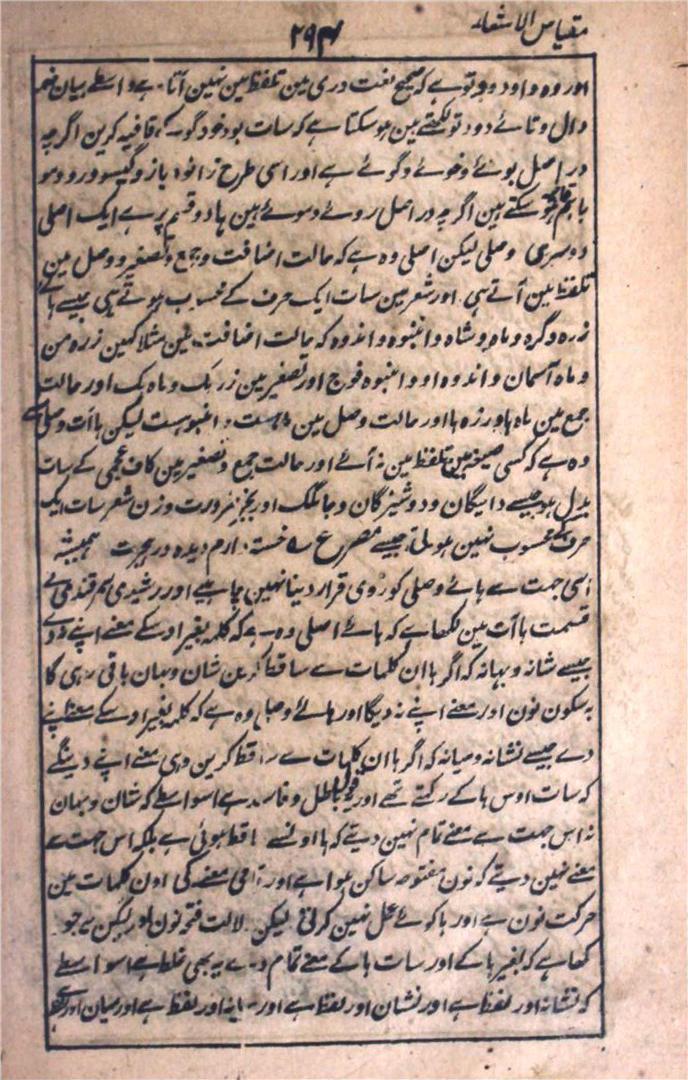 مقیاس الاشعار
۲۹۴
اور وہ واو دو توے کہ صحیح لغت دری مین تلفظ مین نہین آتا ہے واسطے بیان ضمہ
دال و تاے دو و تو لکھتے ہین ہو سکتا ہے کہ سات بو و خو و گو کے قافیہ کرین اگرچہ
در اصل بوئے و خوئے و گوئے ہے اور اسی طرح زانو و بازو و گیسو و رو و سو
باہم قافیہ ہو سکتے ہین اگرچہ در اصل روئے و سوئے ہین ہا دو قسم پر ہے ایک اصلی
دوسری وصلی لیکن اصلی وہ ہے کہ حالت اضافت و جمع و تصغیر و وصل مین
تلفظ مین آتے ہی اور شعر مین سات ایک حرف کے محسوب ہوتے ہی جیسے ہائے
زرہ و گرہ و ماہ و شاہ و انبوہ و اندوہ کہ حالت اضافت مین مثلا کہین زرہ من
و ماہ آسمان و اندوہ او و انبوہ فوج اور تصغیر مین زرہک و ماہک اور حالت
جمع مین ماہ ہا و زرہ ہا اور حالت وصل مین ماہست و انبوہست لیکن ہاآت وصلی
وہ ہے کہ کسی صیغہ مین تلفظ مین نہ آئے اور حالت جمع و تصغیر مین کاف عجمی کے سات
بدل ہو جیسے دایگان و دوشیزگان و جانگک اور بجز ضرورت وزن شعر سات ایک
حرف کے محسوب نہین ہوتی جیسے مصرع خستہ دارم دیدہ در ہجرت ہمیشہ
اسی جہت سے ہائے وصلی کو روی قرار دینا نہین چاہیے اور رشیدی سمرقندی نے
قسمت ہاآت مین لکھا ہے کہ ہائے اصلی وہ ہے کہ کلمہ بغیر اوسکے معنے اپنے ندے
جیسے شانہ و بہانہ کہ اگر ہا ان کلمات سے ساقط کرین شان و بہان باقی رہی گا
بہ سکون نون اور معنے اپنے نہ دیگا اور ہائے وصلی وہ ہے کہ کلمہ بغیر اوسکے معنے اپنے
دے جیسے نشانہ و میانہ کہ اگر ہا ان کلمات سے ساقط کرین وہی معنے اپنے دینگے
کہ سات اوس ہا کے رکتے تھے اور یہ قول باطل و فاسد ہے اسواسطے کہ شان و بہان
نہ اس جہت سے معنے تمام نہین دیتے کہ ہا اونسے ساقط ہوئی ہے بلکہ اس جہت سے
معنے نہین دیتے کہ نون مفتوحہ ساکن ہوا ہے اور تمامی معنے کی اون کلمات مین
حرکت نون ہے اور ہا کوئے عمل نہین کرتی لیکن دلالت فتحہ نون اور لیکن یہ جو
کہا ہے کہ بغیر ہا کے اور سات ہا کے معنے تمام دے یہ بھی غلط ہے اسواسطے
کہ نشانہ اور لفظ ہے اور نشان اور لفظ ہے اور میانہ اور لفظ ہے اور میان اور ہے